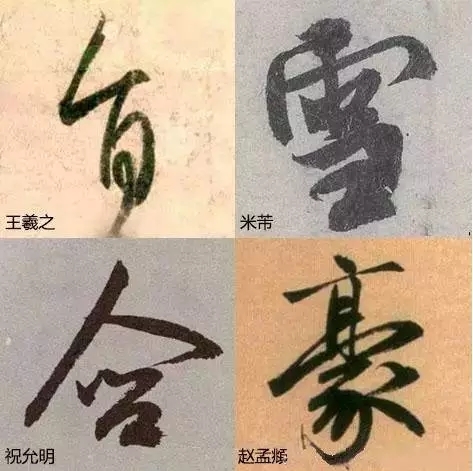 雪
王羲之
米芾
合
豪
祝允明
赵孟頫